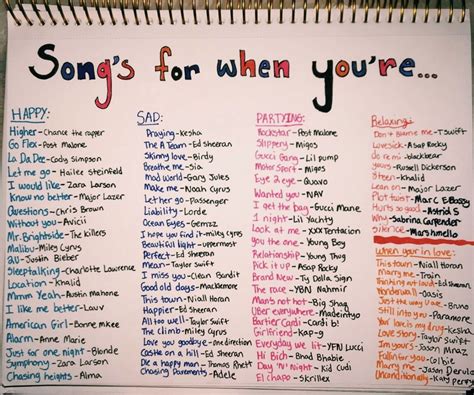 Song's for when you're...
HAPPY:
Higher-Chance the rapper
Go Flex- Post malone
La Da Dee- Cody Simpson
Let me go- Hailee Steinfeld
I would like- Zara Larson
Know no better- Major Lazer
Questions- Chris Brown
Without you- Avicii
Mr. Brightside- The killers
Malibu- Miley Cyrus
2U- Justin Bieber
Sleeptalking- Charlotte Lawrence
Location- Khalid
Mmm Yeah- Austin Mahone
I like me better- Lauv
American Girl- Bonnie Mckee
Alarm- Anne Marie
Just for one night- Blonde
Symphony- Zara Larson
Chasing heights- Alma
SAD:
Praying- kesha
The A Team- Ed sheeran
Skinny love- Birdy
Breathe me- Sia
Mad world- Gary Jules
Make me- Noah Cyrus
Let her go- Passenger
Liability- Lorde
Ocean Eyes- Gemzz
I hope you find it- miley cyrus
Beautiful light- uppermost
Perfect- Ed Sheeran
Mean- Taylor Swift
Issues- Julia
I miss you- Clean Bandit
Good old days- Macklemore
This town- Niall Horan
Happier- Ed Sheeran
The climb- miley Cyrus
Love you goodbye- One direction
Castle on a hill- Ed Sheeran
Die a happy man- Thomas Rhett
Chasing Pavements- Adele
PARTYING:
Rockstar- Post Malone
Slippery- Migos
Gucci Gang- Lil pump
Motor Sport- Migos
Eye 2 eye- Quavo
Wanted you- NAV
I get the bag- Gucci Mane
1 night- Lil Yachty
Look at me- XXXTentacion
you the one- Young Boy
Relationship- Young Thug
Pick it up- Asap Rocky
Brand New- Ty Dolla Sign
The race- YBN Nahmir
Man's not hot- Big Shaq
Uber everywhere- Madeintyo
Bartier Cardi- Cardi b
Girlfriend- Kap-g
Everyday we lit- YFN Lucci
Hi Bich- Bhad Bhabie
Day 'N' Night- Kid Cudi
El chapo- Skrillex
Relaxing:
Don't Blame me- T.Swift
Lovesick- Asap Rocky
do re mi- blackbear
yours- Russell Dickerson
Steen- Khalid
Lean on- Major Lazer
Plot twist- Marc E Bassy
Hurts so good- Astrid S
Why- Sabrina Carpenter
Silence- Marshmello
When your in love:
This town- Niall Horan
Marry me-
Thinking out loud- Ed Sheeran
Wonderwall- Oasis
Just the way I am- Bruno
Still into you- Paramore
Your love is my drug- kesha
Love story- Taylor Swift
Im yours- Jason Mraz
Fallin for you- Colbie
Marry me- Jason Derulo
Unconditionally- Katy Perry